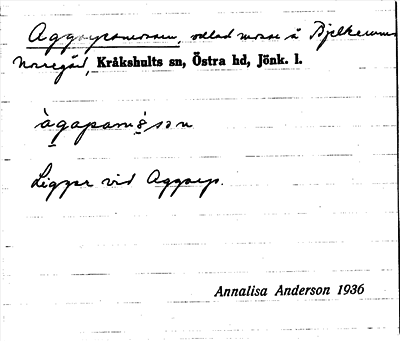 Aggarpamossen, odlad mosse å Bjelkerums
Norregård, Kråkshults sn, Östra hd, Jönk. l.
àgapamåsən
Ligger vid Aggarp.
Annalisa Anderson 1936